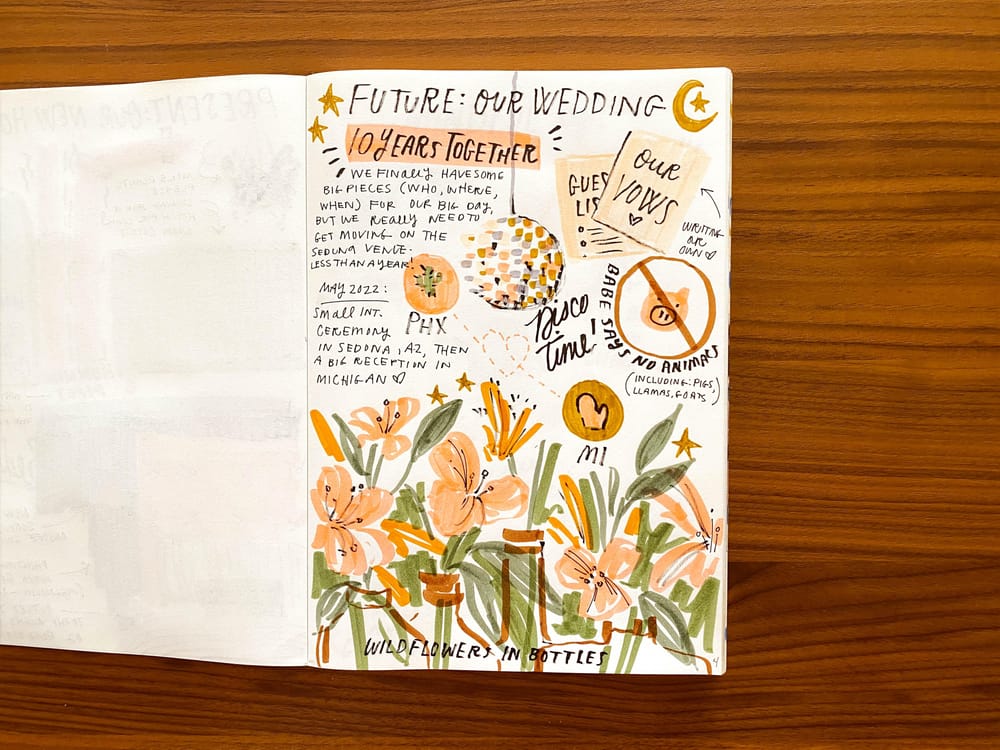 FUTURE: OUR WEDDING
10 YEARS TOGETHER
WE FINALLY HAVE SOME
BIG PIECES (WHO, WHERE,
WHEN) FOR OUR BIG DAY,
BUT WE REALLY NEED TO
GET MOVING ON THE
SEDONA VENUE.
LESS THAN A YEAR!
MAY 2022:
SMALL INT.
CEREMONY
IN SEDONA, AZ, THEN
A BIG RECEPTION IN
MICHIGAN
PHX
DISCO
TIME!
GUES
LIS
OUR
VOWS
WRITING
OUR
OWN
BABE SAYS NO ANIMALS
(INCLUDING: PIGS,
LLAMAS, GOATS)
MI
WILDFLOWERS IN BOTTLES
4
PRESENT: OUR NEW HO